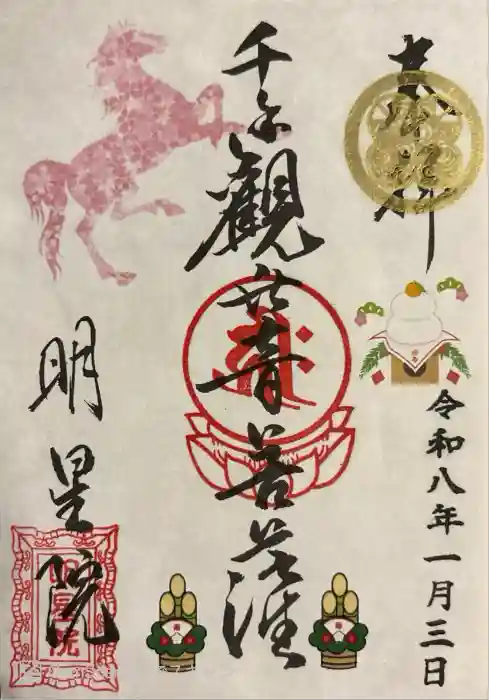 奉拝
令和八年一月三日
千手觀世音菩薩
明星院